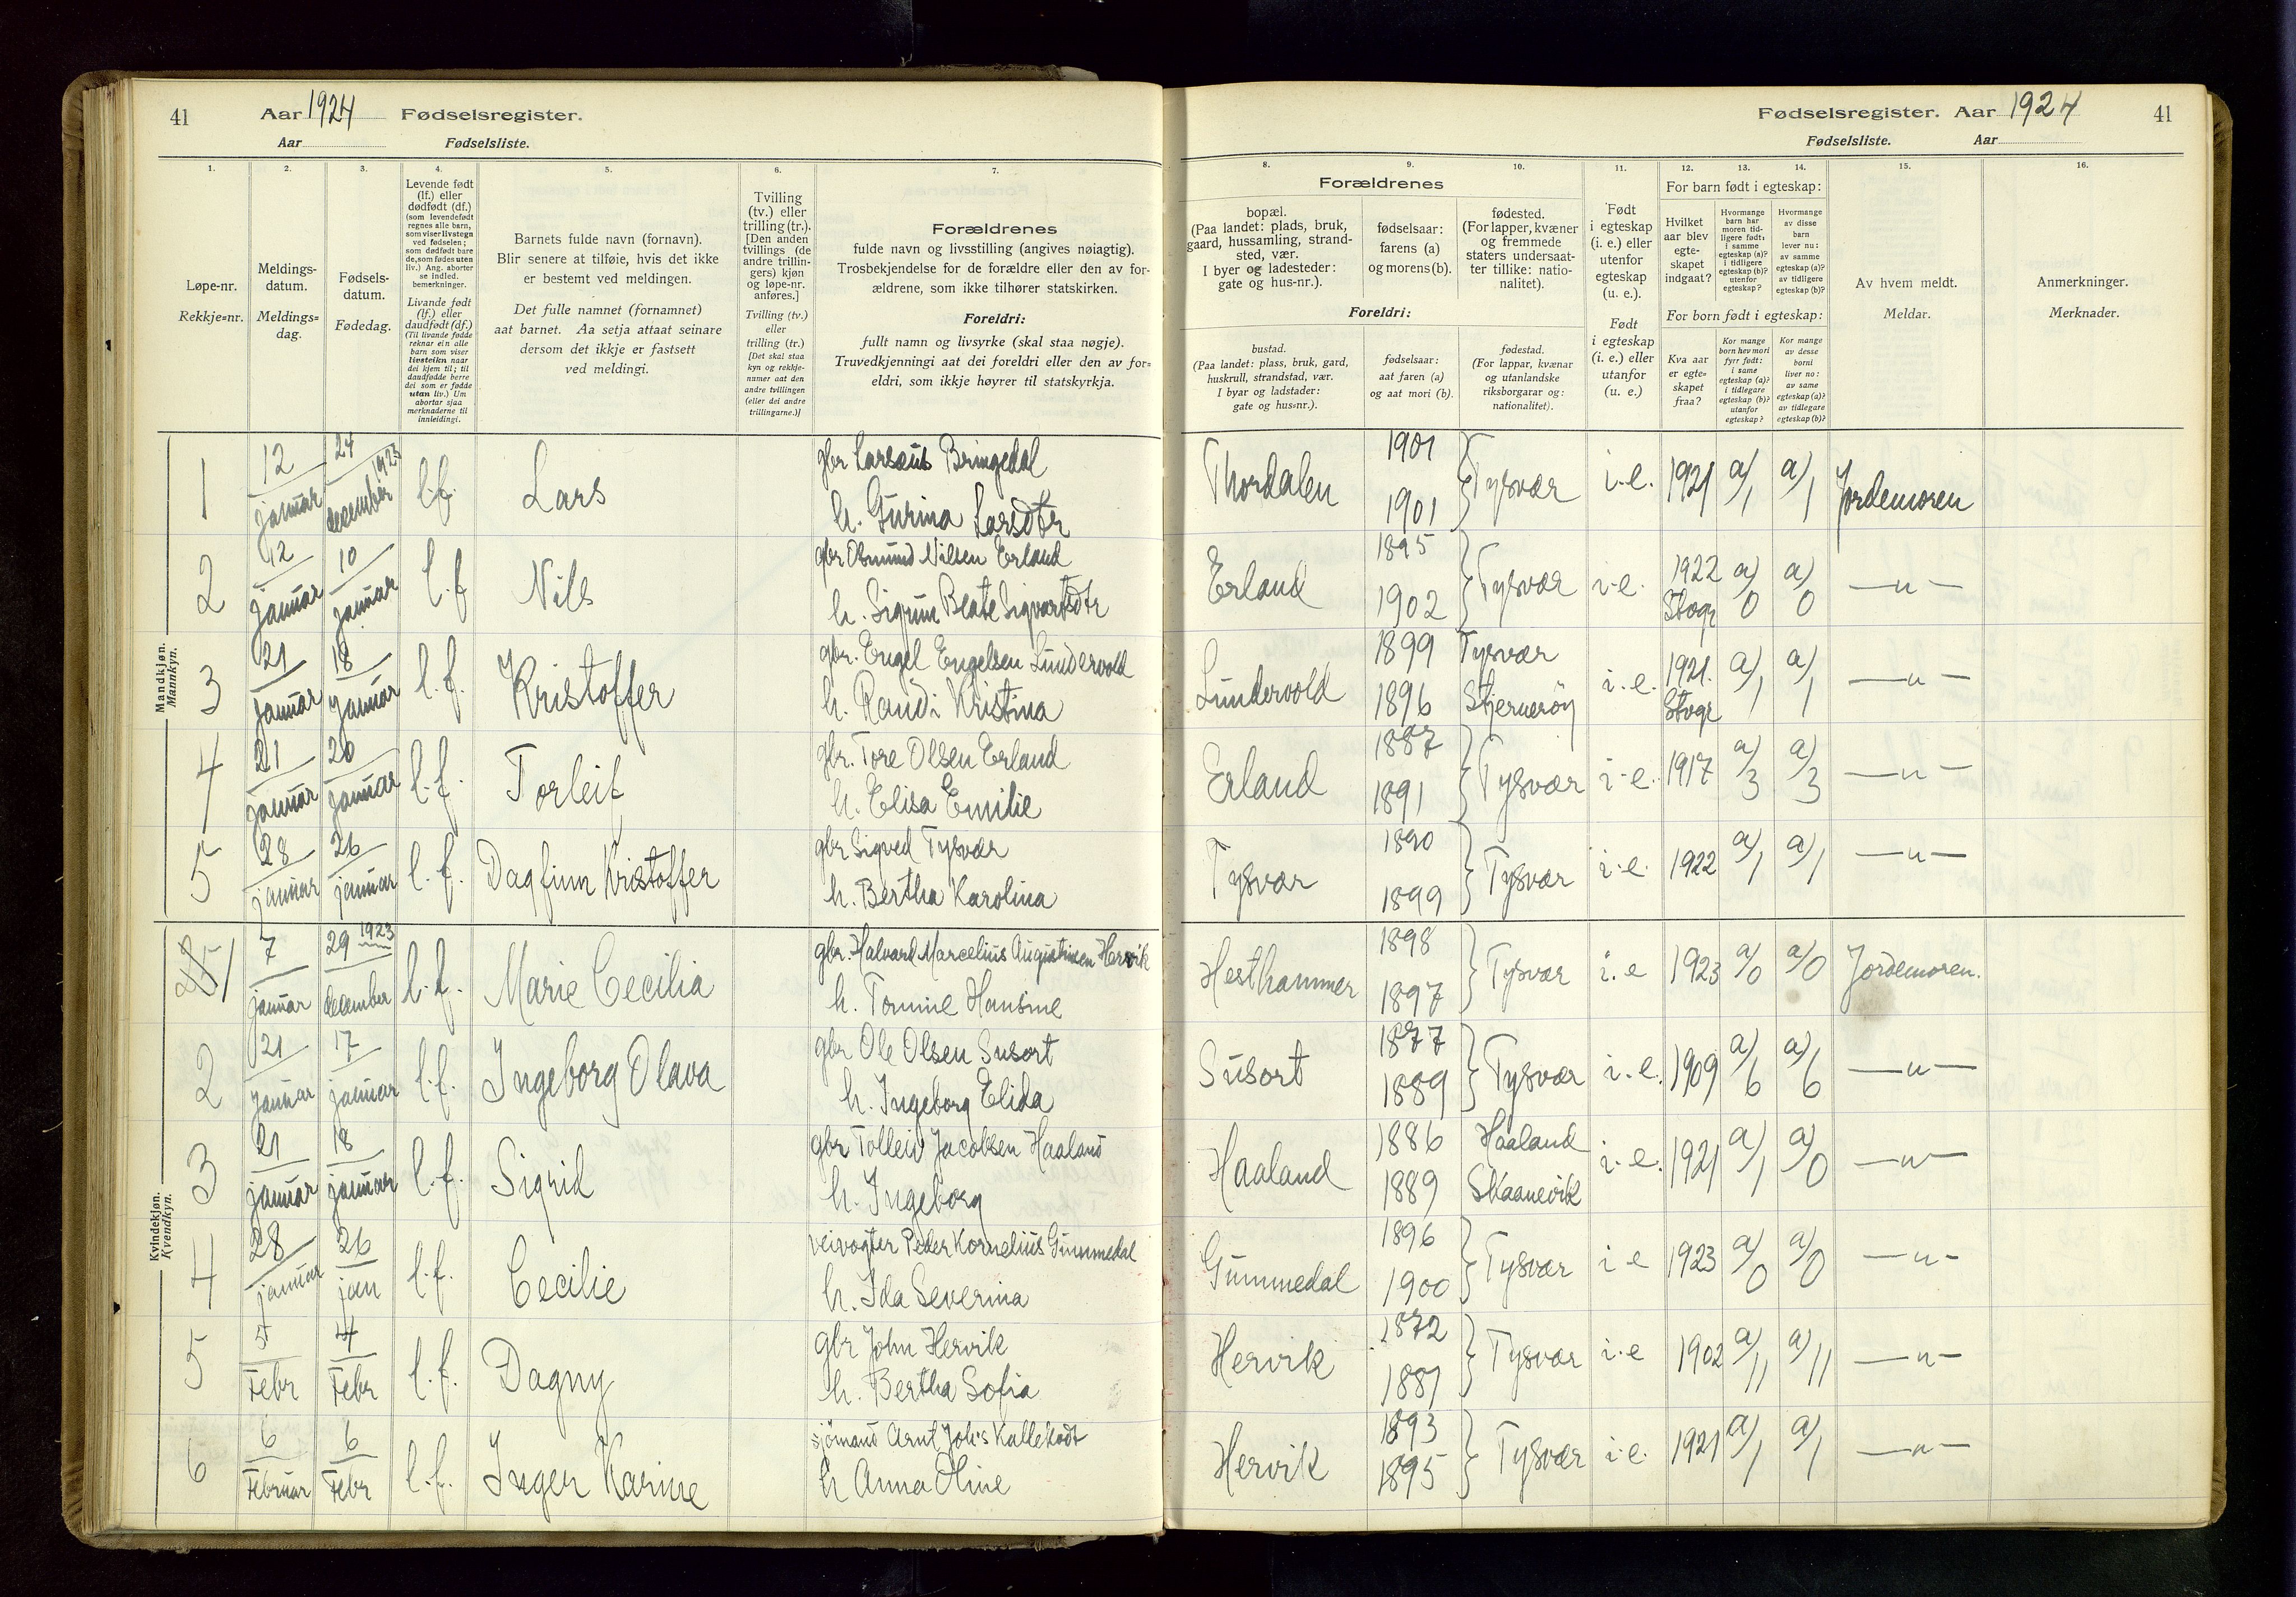 41 Aar 1924 Fødselsregister.
Aar Fødselsliste.
1. 2. 3. 4. 5. 6. 7.
Løpe-nr.
Rekkje=nr.
Meldings-
datum.
Meldings=
dag.
Fødsels-
datum.
Fødedag.
Levende født
(lf.) eller
dødfødt (df.)
(som levendefødt
regnes alle barn,
som viser livstegn
ved fødselen;
som dødfødt bare
de, som fødes uten
liv.) Ang. aborter
se indled.
bemerkninger.
Livande født
(lf.) eller
daudfødt (df.)
(Til livande fødde
reknar ein alle
barn som viser
livsteikn naar
dei kjem til; til
daudfødde berre
dei som er fødde
utan liv.) Um
abortar sjaa
merknaderne til
innleidingi.
Barnets fulde navn (fornavn).
Blir senere at tilføie, hvis det ikke
er bestemt ved meldingen.
Det fulle namnet (fornamnet)
aat barnet. Aa setja attaat seinare
dersom det ikkje er fastsett
ved meldingi.
Tvilling
(tv.) eller
trilling (tr.).
[Den anden
tvillings (de
andre trillin-
gers) kjøn
og løpe-nr.
anføres.]
Tvilling (tv.)
eller
trilling (tr.)
[Det skal staa
kyn og rekkje-
numer aat den
andre tvillingen
(eller dei andre
trillingarne.)]
Forældrenes
fulde navn og livsstilling (angives nøiagtig).
Trosbekjendelse for de forældre eller den av for-
ældrene, som ikke tilhører statskirken.
Foreldri:
fullt namn og livsyrke (skal staa nøgje).
Truvedkjenningi aat dei foreldri eller den av for=
eldri, som ikkje høyrer til statskyrkja.
Mandkjøn.
Mannkyn.
1 12 januar 24 december 1923 l.f. Lars gbr Larsæus Bringedal
h. Gurina Larsdtr
2 12 januar 10 januar l.f Nils gbr Osmund Nilsen Erland
h. Sigrun Beate Sigvartsdtr
3 21 januar 18 januar l.f. Kristoffer gbr. Engel Engelsen Lundervold
h. Randi Kristina
4 21 januar 20 januar l.f. Torleif gbr. Tore Olsen Erland
h. Elisa Emilie
5 28 januar 26 januar l.f. Dagfinn Kristoffer gbr Sigved Tysvær
h. Bertha Karolina
Kvindekjøn.
Kvendkyn.
1 7 januar 29 december 1923 l.f. Marie Cecilia gbr. Halvard Marcelius Augustinsen Hervik
h. Tomine Hansine
2 21 januar 17 januar l.f. Ingeborg Olava gbr Ole Olsen Susort
h. Ingeborg Elida
3 21 januar 18 januar l.f. Sigrid gbr Tolleiv Jacobsen Haaland
h. Ingeborg
4 28 januar 26 jan l.f. Cecilie veivogter Peder Kornelius Gummedal
h. Ida Severina
5 5 Febr 4 Febr l.f. Dagny gbr John Hervik
h. Bertha Sofia
6 6 Februar 6 Febr l.f. Inger Karine sjömand Arnt Joh's Kallekodt
h Anna Oline
Fødselsregister. Aar 1924 41
Fødselsliste. Aar
8. 9. 10. 11. 12. 13. 14. 15. 16.
Forældrenes
bopæl.
(Paa landet: plads, bruk,
gaard, hussamling, strand-
sted, vær.
I byer og ladesteder:
gate og hus-nr.).
fødselsaar:
farens (a)
og morens (b).
fødested.
(For lapper, kvæner
og fremmede
staters undersaat-
ter tillike: natio-
nalitet).
Foreldri:
bustad.
(Paa landet: plass, bruk, gard,
huskrull, strandstad, vær.
I byar og ladstader:
gate og hus=nr.).
fødselsaar:
aat faren (a)
og aat mori (b).
fødestad.
(For lappar, kvænar
og utanlandske
riksborgarar og:
nationalitet).
Født
i egteskap
(i. e.) eller
utenfor
egteskap
(u. e.).
Født
i egteskap
(i. e.) eller
utanfor
(u. e.)
For barn født i egteskap:
Hvilket
aar blev
egte-
skapet
indgaat?
Hvormange
barn har
moren tid-
ligere født:
i samme
egteskap (a)?
i tidligere
egteskap (b)?
utenfor
egteskap?
Hvormange
av disse
barn
lever nu:
av samme
egteskap (a)?
av tidligere
egteskap (b)?
For born født i egteskap:
Kva aar
er egte=
skapet
fraa?
Kor mange
born hev mori
fyrr født:
i same
egteskap (a)?
i tidlegare
egteskap (b)?
utanfor
egteskap?
Kor mange
av desse
borni
liver no:
av same
egteskap (a)?
av tidlegare
egteskap (b)?
Av hvem meldt.
Meldar.
Anmerkninger.
Merknader.
Thordalen 1901 1901 Tysvær i.e. 1921 a/1 a/1 Jordemoren
Erland 1895 1902 Tysvær i.e. 1922 Stvgr a/0 a/0 —u—
Lundervold 1899 1896 Tysvær Stjernerøy i.e. 1921. Stvgr a/1 a/1 —u—
Erland 1887 1891 Tysvær i.e. 1917 a/3 a/3 —u—
Tysvær 1890 1899 Tysvær i.e. 1922 a/1 a/1 —u—
Hesthammer 1898 1897 Tysvær i.e 1923 a/0 a/0 Jordemoren.
Susort 1877 1889 Tysvær i.e. 1909 a/6 a/6 —u—
Haaland 1886 1889 Haaland Skaanevik i.e. 1921 a/1 a/0 —u—
Gummedal 1896 1900 Tysvær i e 1923 a/0 a/0 —u—
Hervik 1872 1881 Tysvær i.e 1902 a/11 a/11 —u—
Hervik 1893 1895 Tysvær i.e. 1921 a/1 a/1 —u—